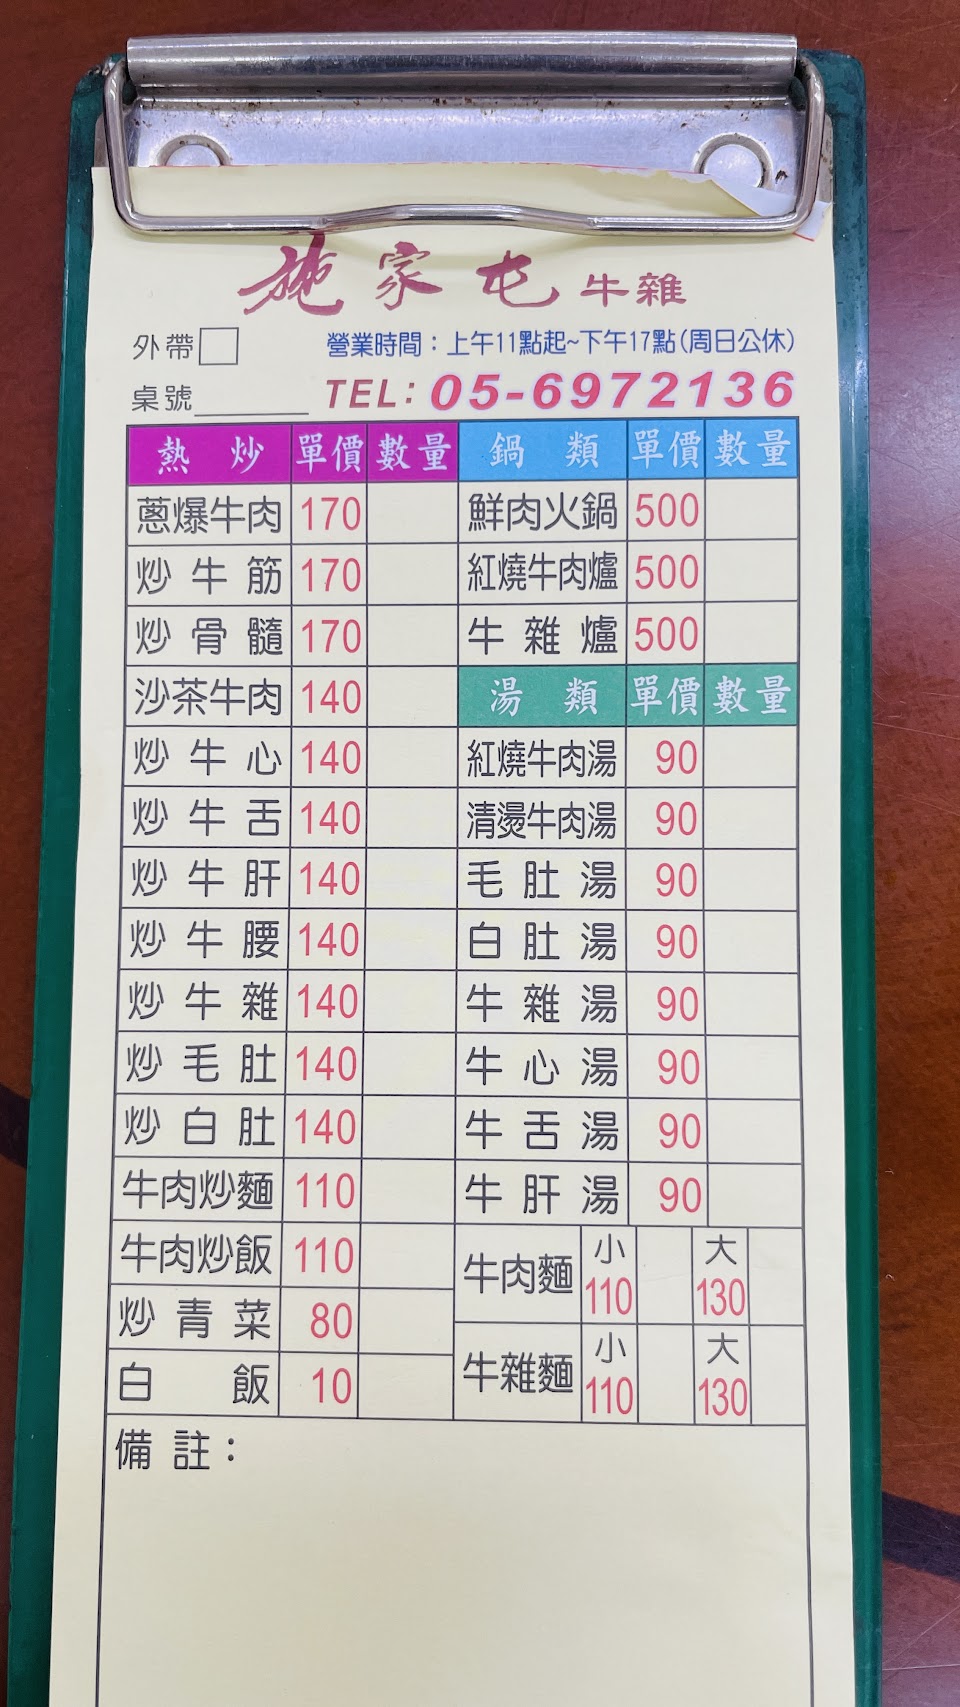 施家屯牛雜
外帶 營業時間：上午11點起~下午17點(周日公休)
桌號 TEL: 05-6972136
熱炒 單價 數量 鍋類 單價 數量
蔥爆牛肉 170 鮮肉火鍋 500
炒牛筋 170 紅燒牛肉爐 500
炒骨髓 170 牛雜爐 500
沙茶牛肉 140 湯類 單價 數量
炒牛心 140 紅燒牛肉湯 90
炒牛舌 140 清燙牛肉湯 90
炒牛肝 140 毛肚湯 90
炒牛腰 140 白肚湯 90
炒牛雜 140 牛雜湯 90
炒毛肚 140 牛心湯 90
炒白肚 140 牛舌湯 90
牛肉炒麵 110 牛肝湯 90
牛肉炒飯 110 牛肉麵 小 110 大 130
炒青菜 80
白飯 10 牛雜麵 小 110 大 130
備註：